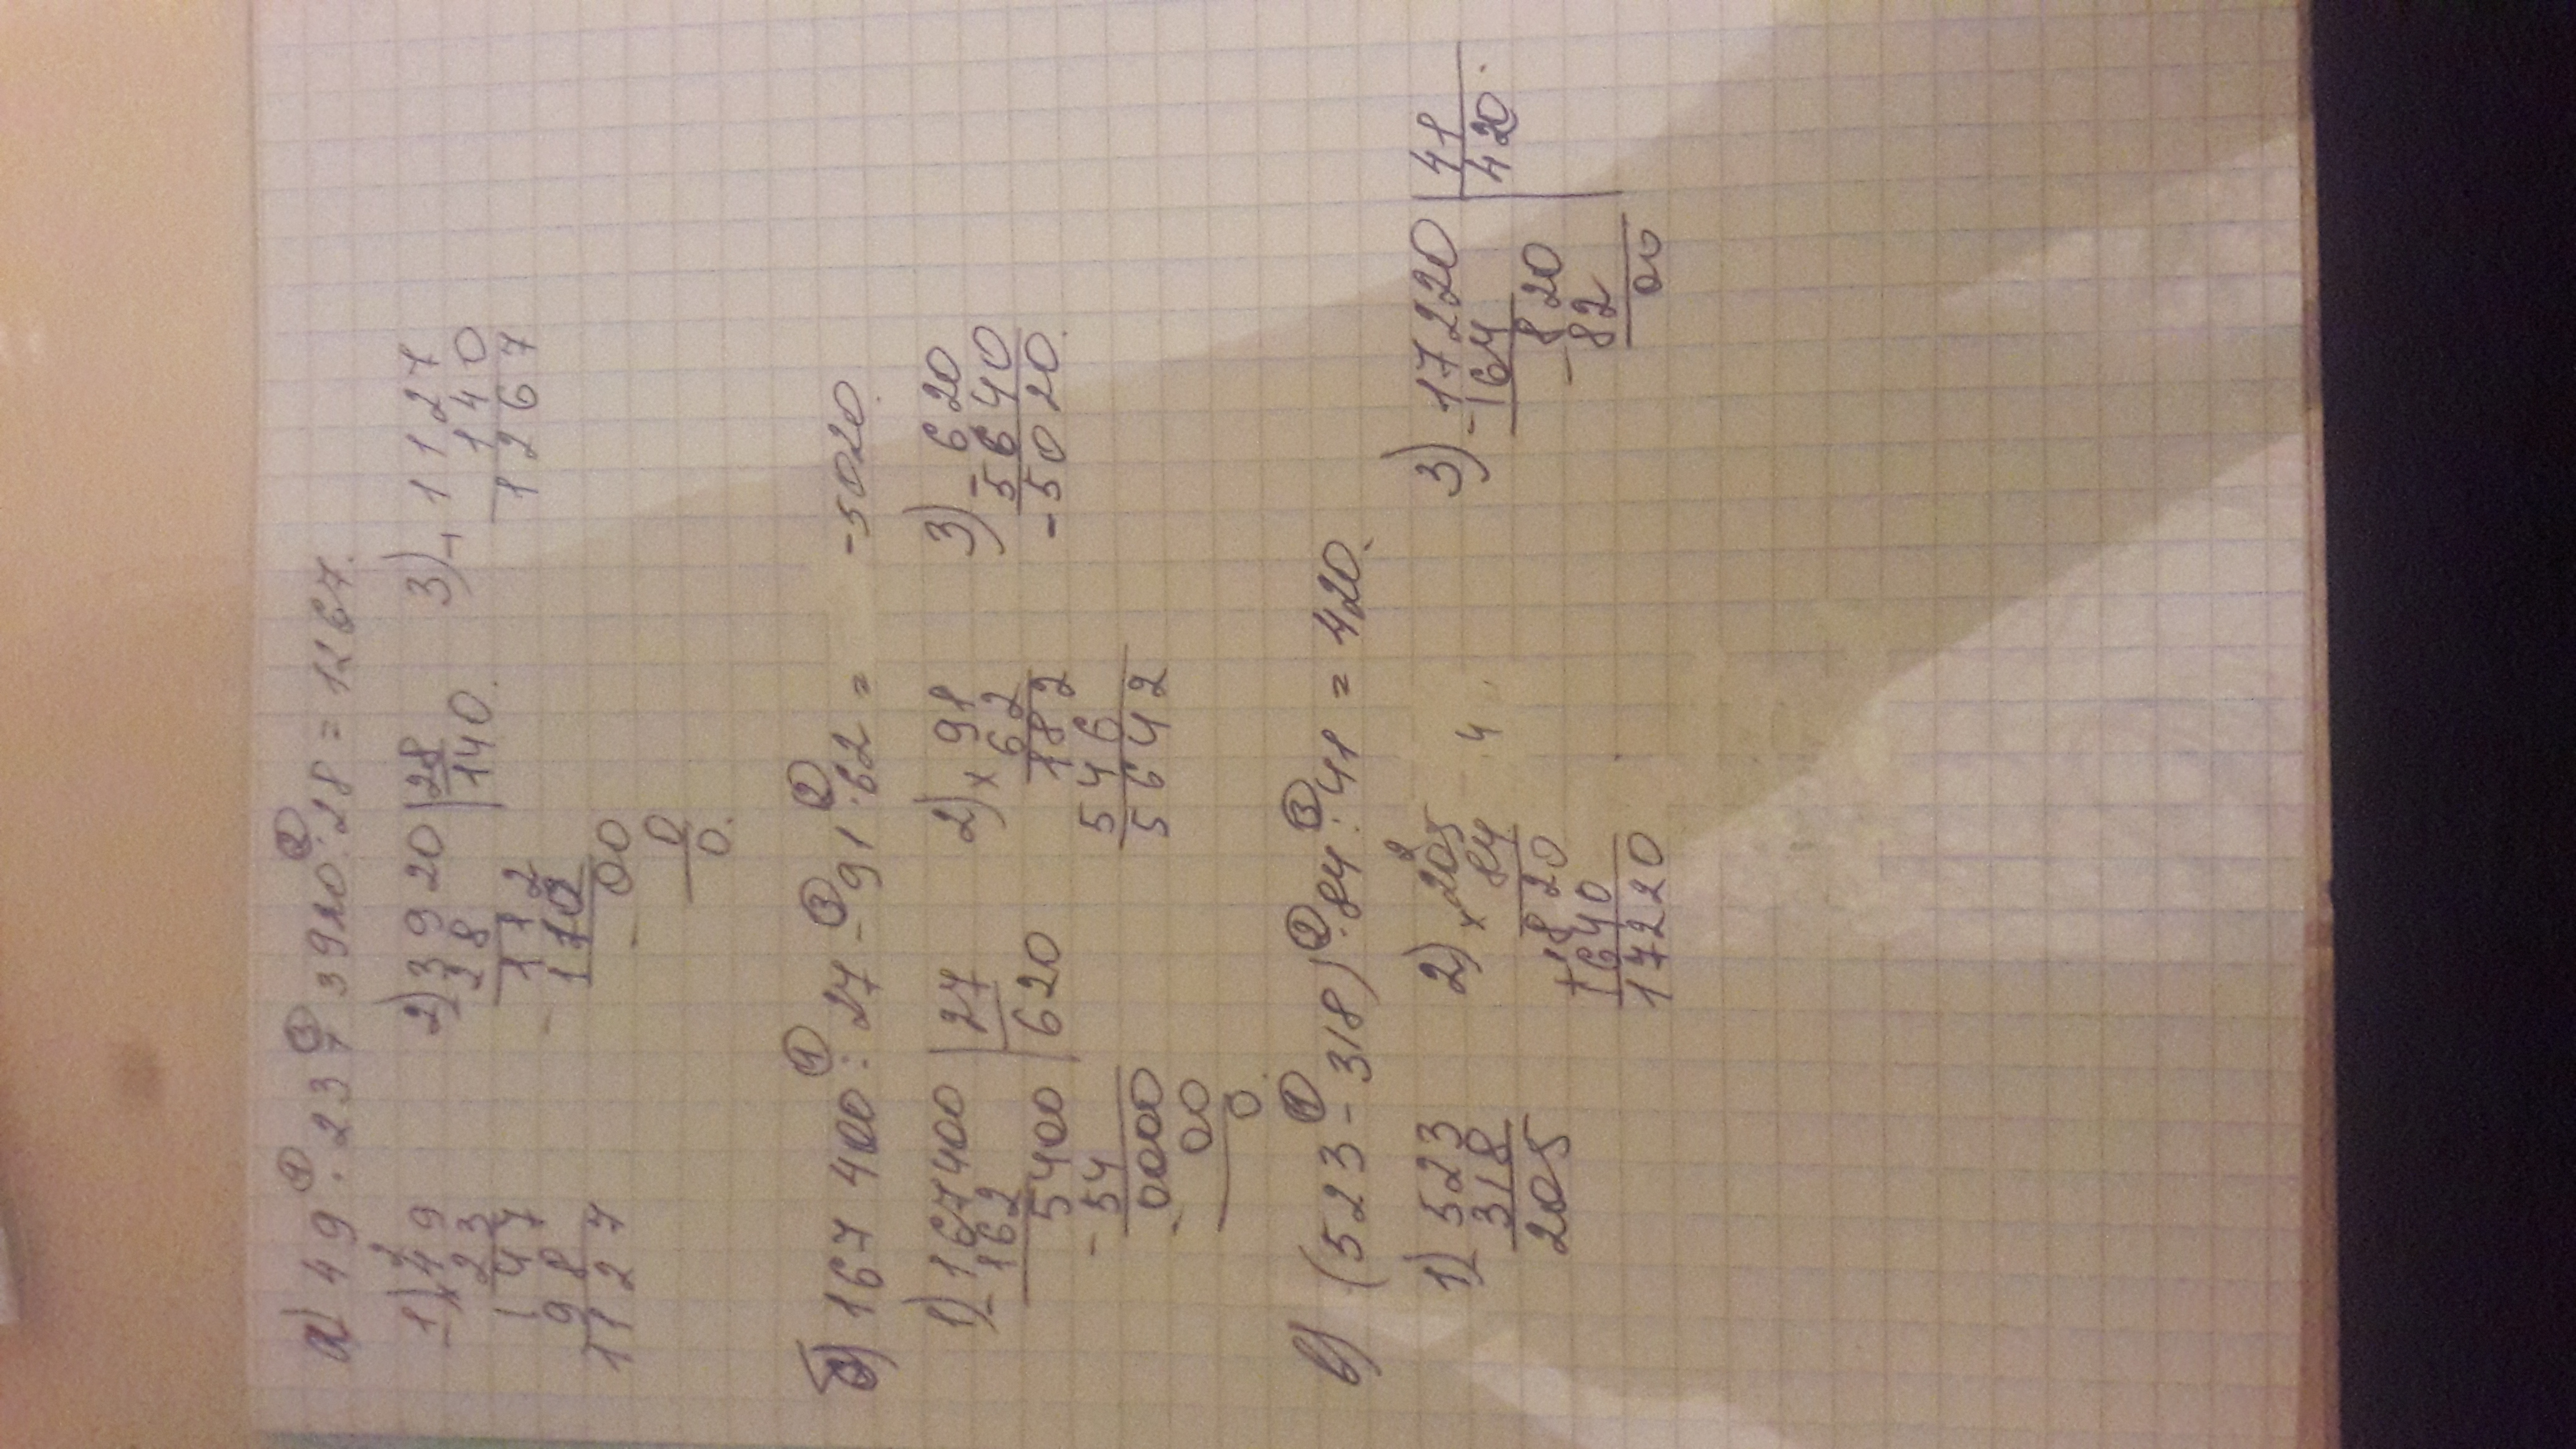 а) 49 · 23 + 3920 : 28 = 1267.
1) × 49
23
147
98
1127
2) 3920 | 28
28 | 140.
112
112
00
0
0.
3) + 1127
140
1267
б) 167 400 : 27 - 91 · 62 = -5020.
1) 167400 | 27
162 | 620
5400
- 54
0000
00
0.
2) × 91
62
182
546
5642
3) - 620
5640
-5020.
в) (523 - 318) · 84 : 41 = 420.
1) 523
318
205
2) × 205
84
820
+ 1640
17220
4
3) - 17220 | 41
164 | 420.
- 820
82
00